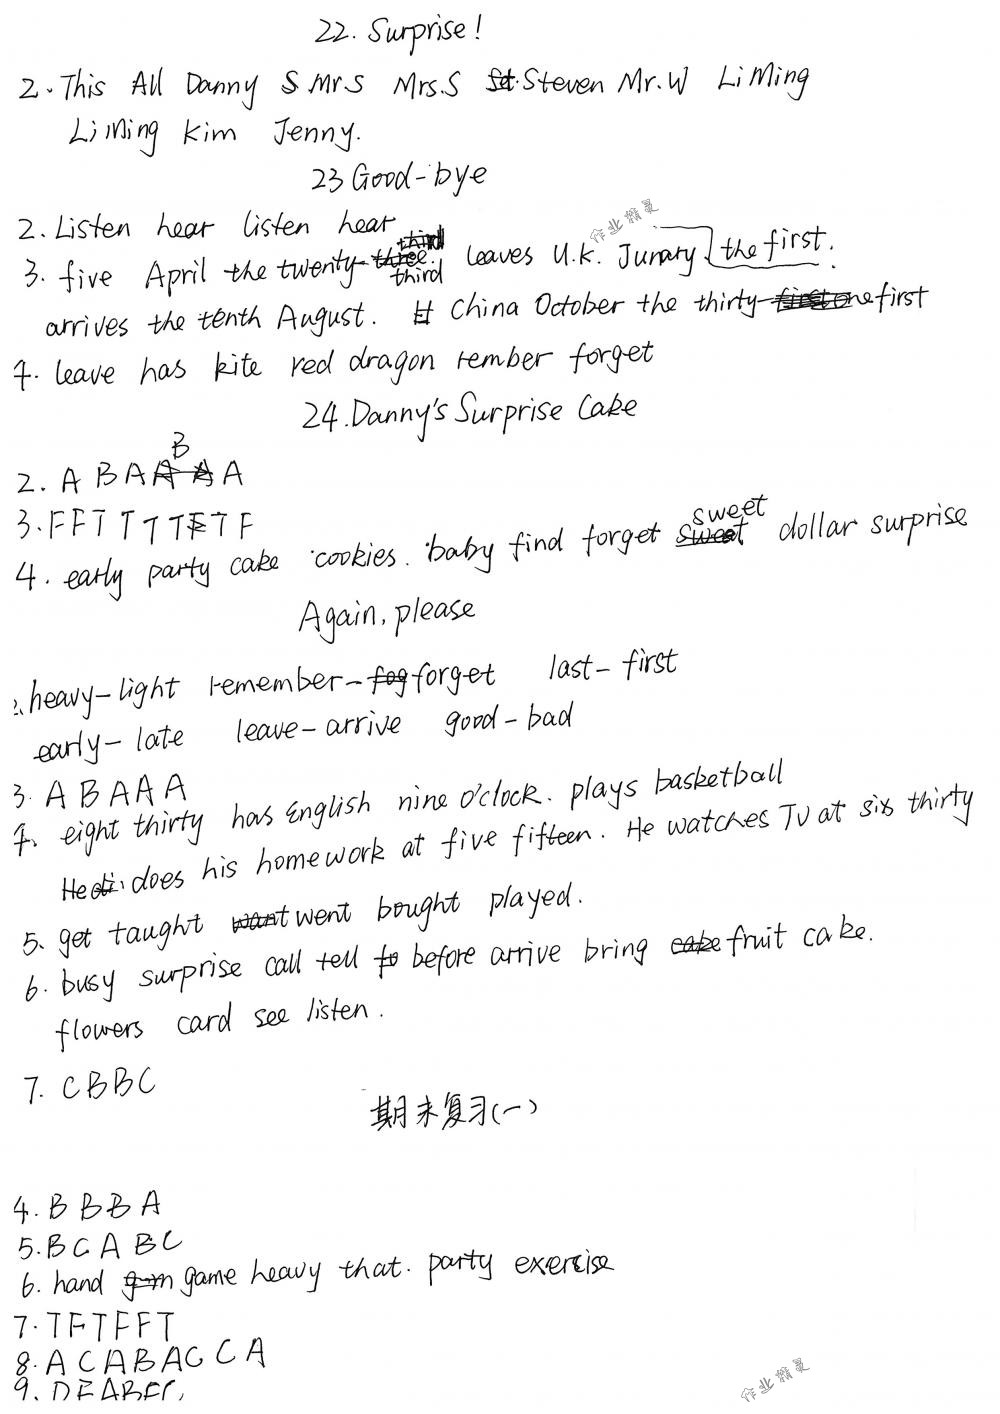 22. Surprise!
2. This All Danny S Mr.S Mrs.S Steven Mr.W LiMing
LiMing Kim Jenny.
23 Good-bye
2. Listen hear listen hear
作业精灵
3. five April the twenty-third leaves U.K. Junary the first.
arrives the tenth August. China October the thirty-first
4. leave has kite red dragon rember forget
24. Danny's Surprise Cake
2. A B A B A
3. F F T T T T F T F
4. early party cake cookies. baby find forget sweet dollar surprise
Again, please
2. heavy-light remember-forget last-first
early-late leave-arrive good-bad
3. A B A A A
4. eight thirty has English nine o'clock. plays basketball
He does his homework at five fifteen. He watches TV at six thirty
5. get taught went bought played.
6. busy surprise call tell before arrive bring fruit cake.
flowers card see listen.
7. C B B C
期末复习(一)
4. B B B A
5. B C A B C
6. hand game heavy that. party exercise
7. T F T F F T
8. A C A B A C C A
9.
作业精灵